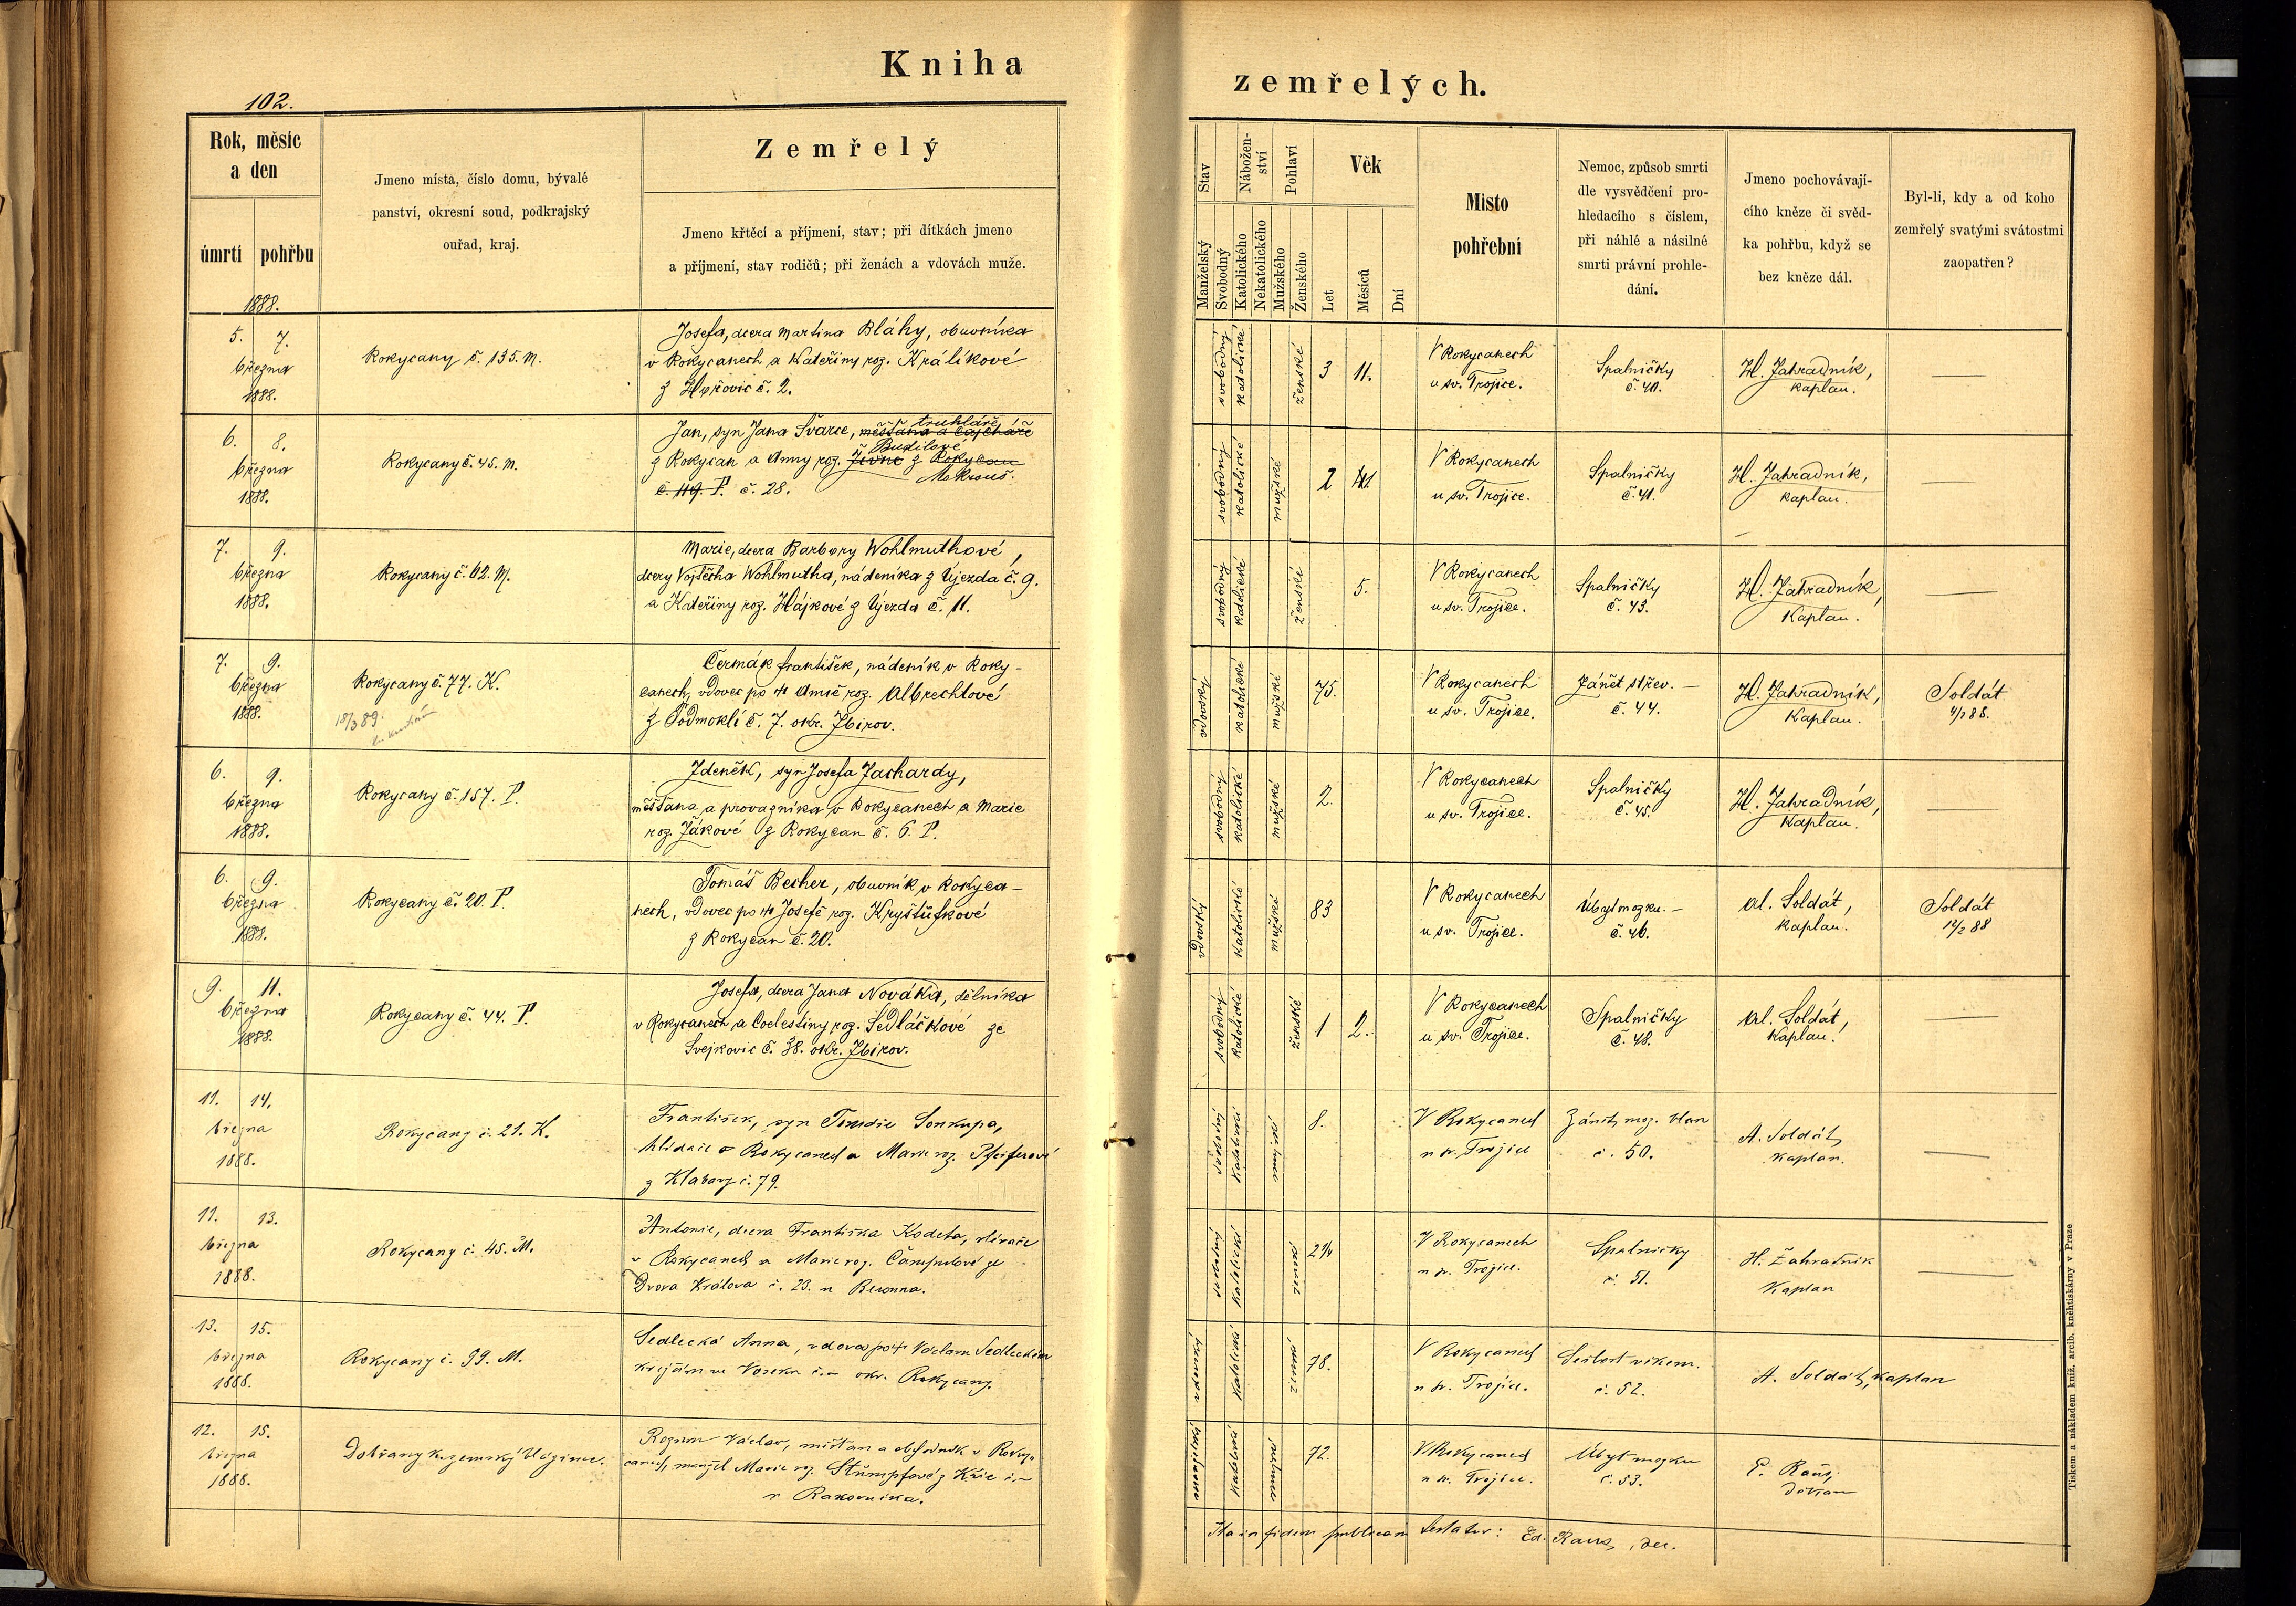 Kniha
zemřelých.
102.
Rok, měsíc
a den
úmrtí pohřbu
1888.
Jmeno místa, číslo domu, bývalé
panství, okresní soud, podkrajský
ouřad, kraj.
Zemřelý
Jmeno křtěcí a příjmení, stav; při dítkách jmeno
a příjmení, stav rodičů; při ženách a vdovách muže.
Stav
Manželský
Svobodný
Nábožen-
ství
Katolického
Nekatolického
Pohlaví
Mužského
Ženského
Věk
Let
Měsíců
Dní
Místo
pohřební
Nemoc, způsob smrti
dle vysvědčení pro-
hledacího s číslem,
při náhlé a násilné
smrti právní prohle-
dání.
Jmeno pochovávají-
cího kněze či svěd-
ka pohřbu, když se
bez kněze dál.
Byl-li, kdy a od koho
zemřelý svatými svátostmi
zaopatřen?
5. 7.
března
1888.
Rokycany č. 135. M.
Josefa, dcera Martina Bláhy, obuvníka
v Rokycanech a Kateřiny roz. Králíkové
z Hořovic č. 2.
svobodný katolické ženské 3 11.
V Rokycanech
u sv. Trojice.
Spalničky
č. 40.
H. Zahradník,
kaplan.
6. 8.
března
1888.
Rokycany č. 45. M.
truhláře
Jan, syn Jana Švarce, měšťana a
Budilové
z Rokycan a Anny roz. z Rokycan
Mokrouš.
č. 119. P. č. 28.
svobodný katolické mužské 2
V Rokycanech
u sv. Trojice.
Spalničky
č. 41.
H. Zahradník,
kaplan.
7. 9.
března
1888.
Rokycany č. 62. M.
Marie, dcera Barbory Wohlmuthové,
dcery Vojtěcha Wohlmutha, nádeníka z Újezda č. 9.
a Kateřiny roz. Hájkové z Újezda č. 11.
svobodný katolické ženské 5.
V Rokycanech
u sv. Trojice.
Spalničky
č. 43.
H. Zahradník,
Kaplan.
7. 9.
března
1888.
Rokycany č. 77. K.
18/3 89.
Čermák František, nádeník v Roky-
canech, vdovec po Anně roz. Albrechtové
z Podmoklí č. 7. okr. Zbirov.
vdovský katolické mužské 75.
V Rokycanech
u sv. Trojice.
Zánět střev. –
č. 44.
H. Zahradník,
Kaplan.
Soldát
6. 9.
března
1888.
Rokycany č. 157. P.
Zdeněk, syn Josefa Zachardy,
měšťana a provazníka v Rokycanech a Marie
roz. Žákové z Rokycan č. 6. P.
svobodný katolické mužské 2.
V Rokycanech
u sv. Trojice.
Spalničky
č. 45.
H. Zahradník,
Kaplan.
6. 9.
března
1888.
Rokycany č. 20. P.
Tomáš Becher, obuvník v Rokyca-
nech, vdovec po Josefě roz. Kryštůfkové
z Rokycan č. 20.
vdovský katolické mužské 83
V Rokycanech
u sv. Trojice.
Úbyt mozku. –
č. 46.
Al. Soldát,
kaplan.
Soldát
9. 11.
března
1888.
Rokycany č. 44. P.
Josefa, dcera Jana Nováka, dělníka
v Rokycanech a Coelestiny roz. Sedláčkové ze
Svejkovic č. 38. okr. Zbirov.
svobodný katolické ženské 1 2.
V Rokycanech
u sv. Trojice.
Spalničky
č. 48.
Al. Soldát,
Kaplan.
11. 14.
března
1888.
Rokycany č. 21. K.
František, syn Tomáše Sonkupa,
hlídače v Rokycanech a Marie roz. Pfeiferové
z Klabavy č. 79.
svobodný katolické mužské 8.
V Rokycanech
u sv. Trojice
Zánět moz. blan
č. 50.
A. Soldát,
kaplan.
11. 13.
března
1888.
Rokycany č. 45. M.
Antonie, dcera Františka Kodeta, slévače
v Rokycanech a Marie roz. ze
Dvora Králova č. 23. u Berouna.
svobodný katolické ženské
V Rokycanech
u sv. Trojice.
Spalničky
č. 51.
H. Zahradník
Kaplan
13. 15.
března
1888.
Rokycany č. 99. M.
Sedlecká Anna, vdova po Václavu Sedleckém
krejčím ve Voseku č. – okr. Rokycany.
vdovský katolické ženské 78.
V Rokycanech
u sv. Trojice.
Sešlost věkem.
č. 52.
A. Soldát, kaplan
12. 15.
března
1888.
Dobřany v zemský blázinec.
Václav, měšťan a obchodník v Roky-
canech, manžel Marie roz. Štumpfové z Kříc č. –
u Rakovníka.
manželský katolické mužské 72.
V Rokycanech
u sv. Trojice.
Úbyt mozku
č. 53.
E.
děkan
Ita in fidem publicam testatur: Ed. dec.
Tiskem a nákladem kníž. arcib. knihtiskárny v Praze